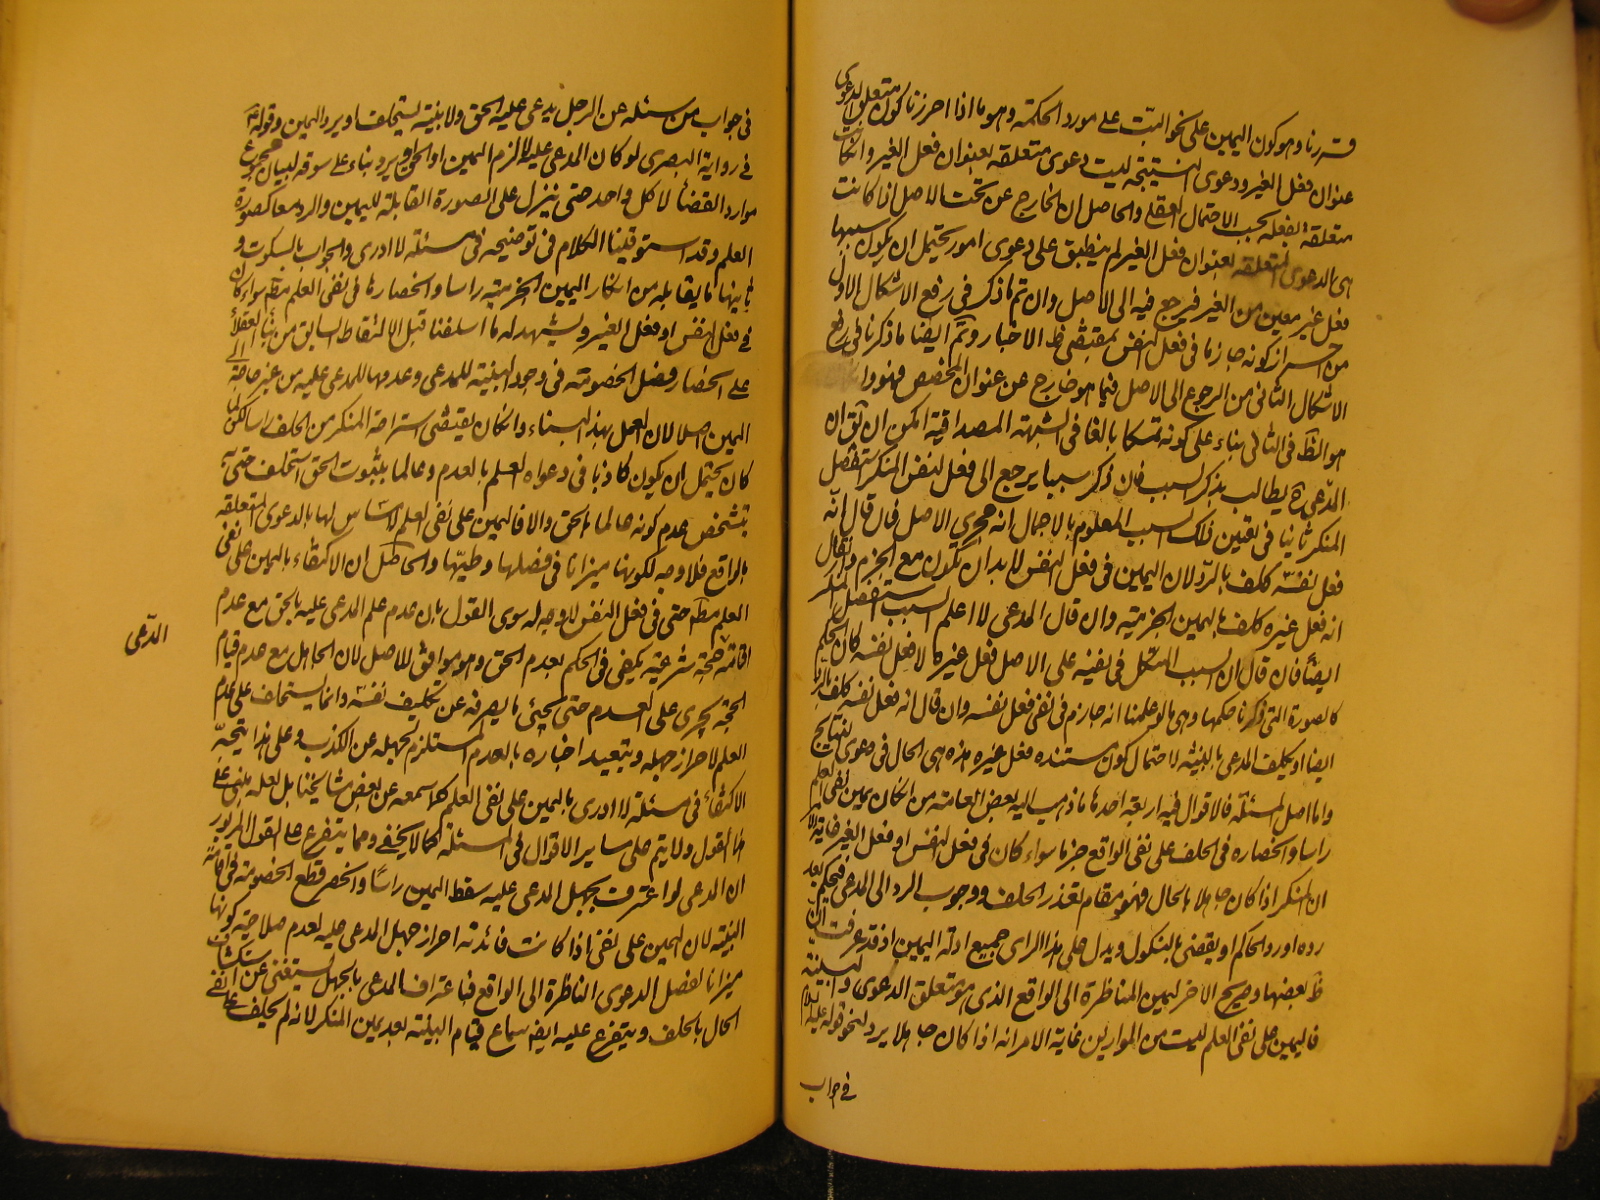 قررنا وهو كون اليمين على نحو البت على مورد الحكمة وهو ما اذا احرزنا كون متعلق الدعوى
عنوان فعل الغير ودعوى النتيجة ليست دعوى متعلقة بعنوان فعل الغير وان كانت
متعلقة بفعله بحسب الاحتمال العقلى والحاصل ان الخارج عن تحت الاصل اذا كانت
هى الدعوى المتعلقة بعنوان فعل الغير لم ينطبق على دعوى امور يحتمل ان يكون سببها
فعل غير معين من الغير فيرجع فيه الى الاصل وان تم ما ذكر فى رفع الاشكال الاول
من احراز كونه جازما فى فعل النفس بمقتضى ظ الاخبار وتم ايضا ما ذكرنا فى رفع
الاشكال الثانى من الرجوع الى الاصل فيما هو خارج عن عنوان المخصص فهو وا
هو الظ فى الثانى بناء على كونه تمسكا بالعام فى الشبهة المصداقية امكن ان يق ان
المدعى ح يطالب بذكر السبب فان ذكر سببا يرجع الى فعل لنفس المنكر يستفصل
المنكر ثانيا فى تعيين ذلك السبب المعلوم بالاجمال انه مجرى الاصل فان قال انه
فعل نفسه كلف بالرد لان اليمين فى فعل النفس لابد ان يكون مع الجزم وان قال
انه فعل غيره كلف باليمين الجزمية وان قال المدعى لا اعلم السبب استفصل المنكر
ايضا فان قال ان السبب المتكل فى نفيه على الاصل فعل غيره لا فعل نفسه كان الحكم
كالصورة التى ذكرنا حكمها وهى ما لو علمنا انه جازم فى نفى فعل نفسه وان قال انه فعل نفسه كلف بالرد
ايضا او يكلف المدعى بالبينة لاحتمال كون مستنده فعل غيره هذه هى الحال فى دعوى النتايج
واما اصل المسئلة فالاقوال فيه اربعة احدها ما ذهب اليه بعض العامة من انكار يمين نفى العلم
راسا وانحصاره فى الحلف على نفى الواقع جزما سواء كان فى فعل النفس او فعل الغير غاية الامر
ان المنكر اذا كان جاهلا بالحال فهو مقام تعذر الحلف ووجوب الرد الى المدعى فيحكم بعد
رده او رد الحاكم او يقضى بالنكول ويدل على هذا الراى جميع ادلة اليمين اذ قد عرفت ان
ظ بعضها وصريح الاخر اليمين المناظرة الى الواقع الذى هو متعلق الدعوى والبينة
فاليمين على نفى العلم ليست من الموازين غاية الامر انه اذا كان جاهلا يرد لنحو قوله عليه السلام
فى جواب
فى جواب من سئله عن الرجل يدعى عليه الحق ولا بينة يستحلف او يرد اليمين وقوله
فى رواية البصرى لو كان المدعى عليه حيا لالزم اليمين او الحق او يرد بناء على سوقه لبيان مجموع
موارد القضاء لا كل واحد حتى ينزل على الصورة القابلة لليمين والرد معا كصورة
العلم وقد استوفينا الكلام فى توضيحه فى مسئلة لا ادرى والجواب بالسكوت و
ثانيها ما يقابله من انكار اليمين الجزمية راسا وانحصارها فى نفى العلم مط سواء كان
فى فعل النفس او فعل الغير ويشهد له ما اسلفنا قبل الالتقاط السابق من بناء العقلاء
على انحصار فصل الخصومة فى وجود البينة للمدعى وعدمها للمدعى عليه من غير حاجة الى
اليمين اصلا لان العمل بهذا البناء وان كان يقتضى استراحة المنكر من الحلف راسا لكن لما
كان يحتمل ان يكون كاذبا فى دعواه العلم بالعدم وعالما بثبوت الحق استحلف حتى
يتشخص عدم كونه عالما بالحق والا فاليمين على نفى العلم لا مساس لها بالدعوى المتعلقة
بالواقع فلا وجه لكونها ميزانا فى فصلها وطيها والحاصل ان الاكتفاء باليمين على نفى
العلم مط حتى فى فعل النفس لا وجه له سوى القول بان عدم علم المدعى عليه بالحق مع عدم
اقامة حجة شرعية يكفى فى الحكم بعدم الحق وهو موافق للاصل لان الجاهل مع عدم قيام
الحجة يجرى على العدم حتى يجئى ما يصرفه عن تكليف نفسه وانما يستحلف على عدم
العلم لاحراز جهله وتبعيد اخباره بالعدم المستلزم لجهله عن الكذب وعلى هذا يتجه
الاكتفاء فى مسئلة لا ادرى باليمين على نفى العلم كما سمعه عن بعض مشايخنا بل لعله مبنى على
هذا القول ولا يتم على ساير الاقوال فى المسئلة كما لا يخفى ومما يتفرع على القول المزبور
ان المدعى لو اعترف بجهل المدعى عليه سقط اليمين راسا وانحصر قطع الخصومة فى اقامة
البينة لان اليمين على نفى اذا كانت فائدته احراز جهل المدعى عليه لعدم صلاحية كونها
ميزانا لفصل الدعوى الناظرة الى الواقع فباعتراف المدعى بالجهل يستغنى عن استكشاف
الحال بالحلف ويتفرع عليه ايضا سماع قيام البينة بعد يمين المنكر لانه لم يحلف على نفى
الدّعى